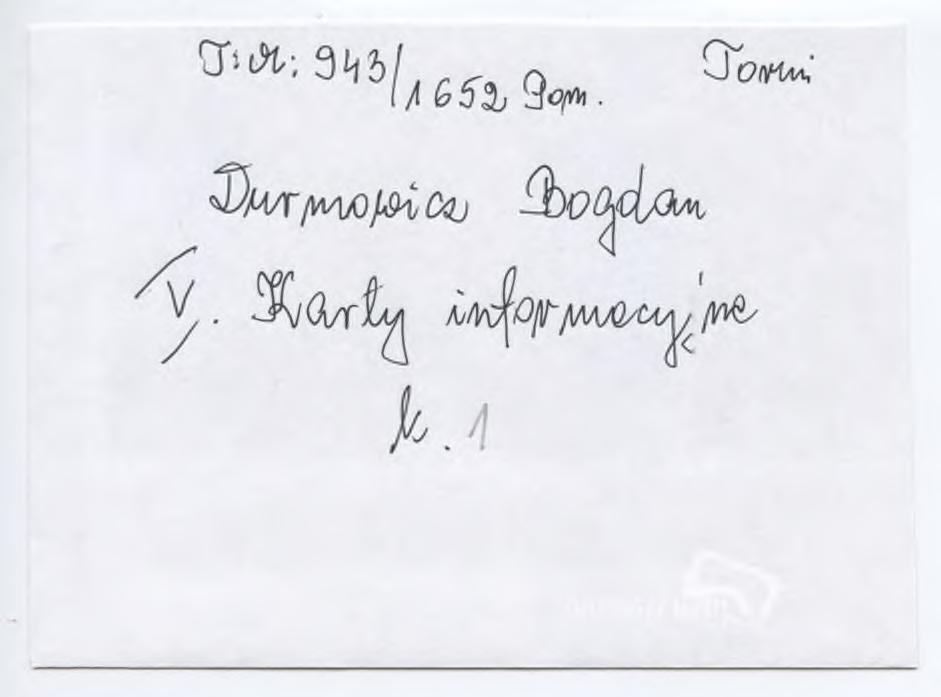 T: M: 943/1652 Pom. Toruń
Durmowicz Bogdan
V. Karty informacyjne
k. 1